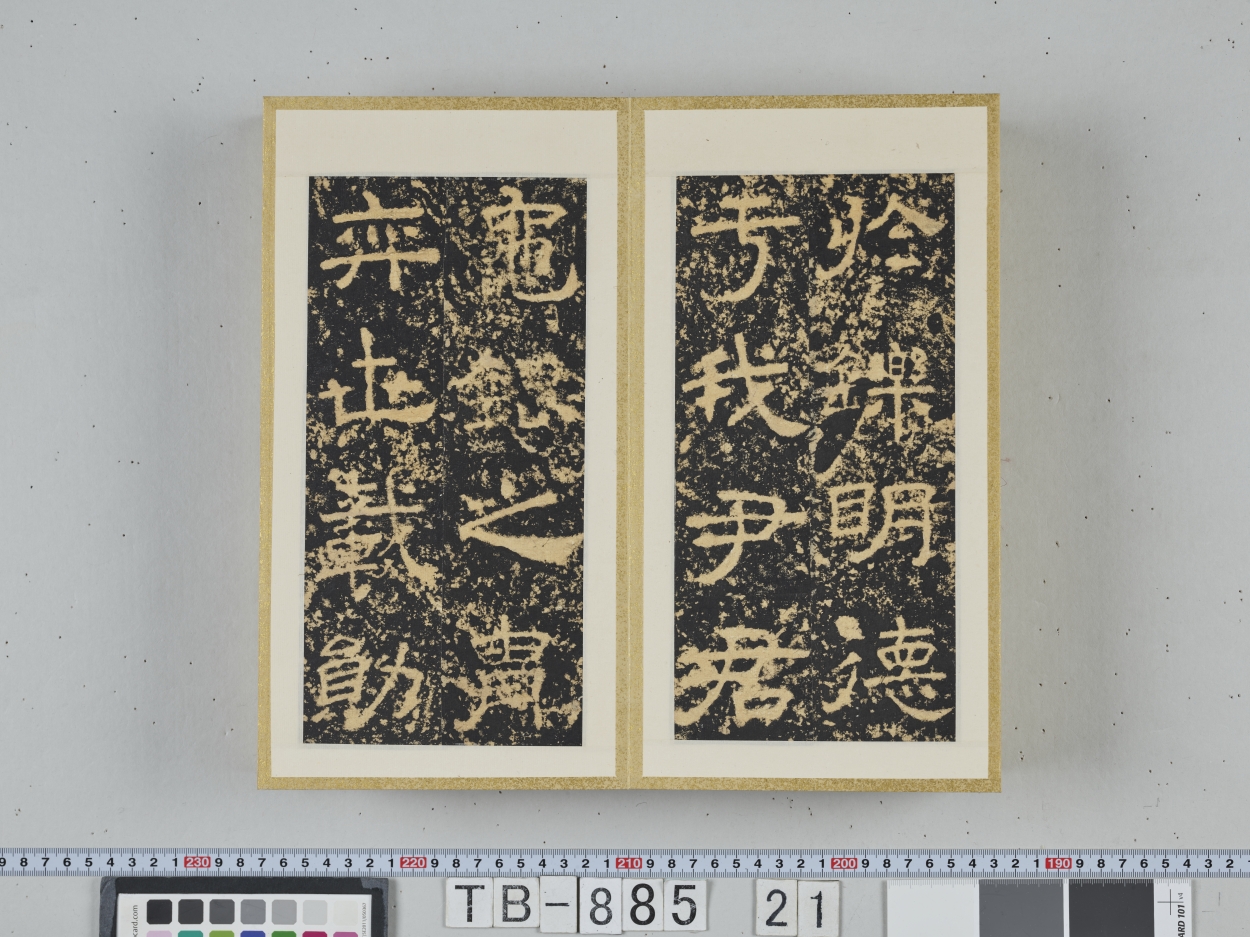 於鑠明德
于我尹君
龜銀之胄
弈世載勛
9 8 7 6 5 4 3 2 1 230 9 8 7 6 5 4 3 2 1 220 9 8 7 6 5 4 3 2 1 210 9 8 7 6 5 4 3 2 1 200 9 8 7 6 5 4 3 2 1 190 9 8 7 6 5 4 3 2
TB-885 21